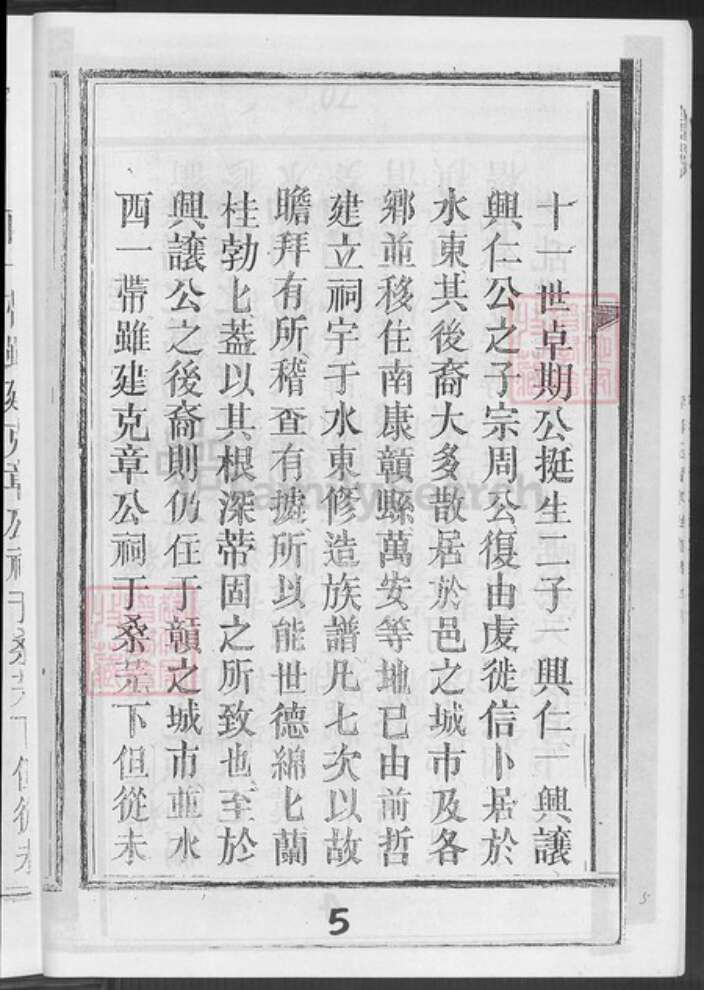 十一世卓期公挺生二子一興仁一興讓
興仁公之子宗周公復由虔徙信卜居於
水東其後裔大多散居於邑之城市及各
鄉並移住南康贛縣萬安等地已由前哲
建立祠宇于水東修造族譜凡七次以故
瞻拜有所稽查有據所以能世德綿匕蘭
桂勃匕蓋以其根深蒂固之所致也至於
興讓公之後裔則仍住于贛之城市並水
西一帶雖建克章公祠于桑 下但從未
5
FamilySearch